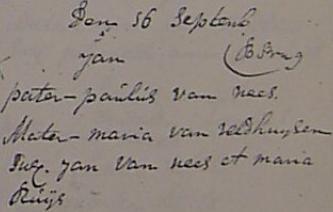 Den 16 Septemb
Jan
pater - paulus van nees.
Mater - maria van veldhuysen
Susc. jan van nees et maria
Ruijs